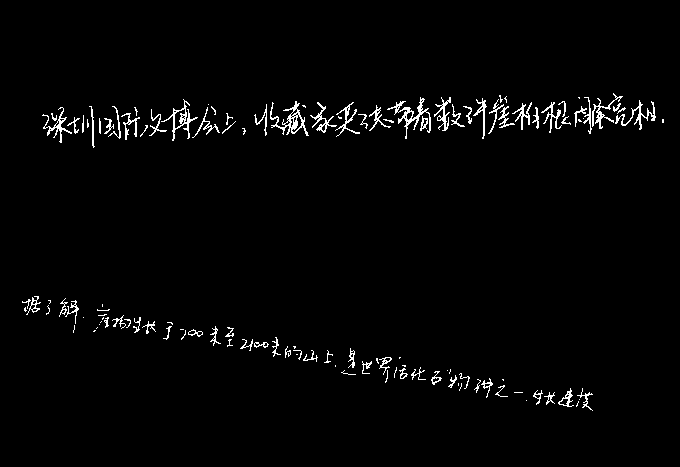 深圳国际文博会上,收藏家吴志带着数件崖柏根雕亮相.
据了解.崖柏生长于700米至2100米的山上.是世界“活化石”物种之一.生长速度